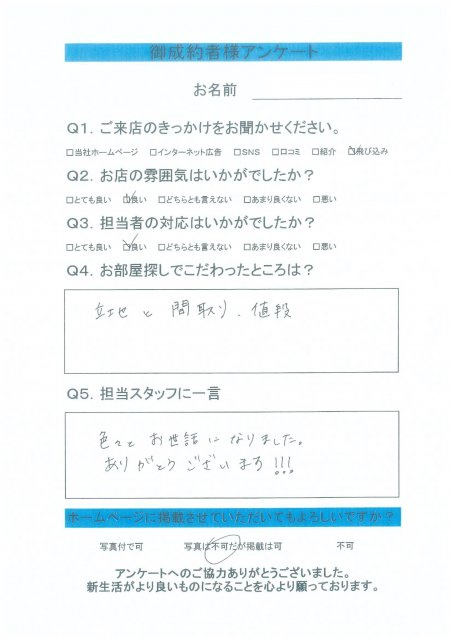 御成約者様アンケート
お名前
Q1. ご来店のきっかけをお聞かせください。
□当社ホームページ □インターネット広告 □SNS □口コミ □紹介 ☑飛び込み
Q2. お店の雰囲気はいかがでしたか？
□とても良い ☑良い □どちらとも言えない □あまり良くない □悪い
Q3. 担当者の対応はいかがでしたか？
□とても良い ☑良い □どちらとも言えない □あまり良くない □悪い
Q4. お部屋探しでこだわったところは？
立地と間取り、値段
Q5. 担当スタッフに一言
色々とお世話になりました。
ありがとうございます!!!
ホームページに掲載させていただいてもよろしいですか？
写真付で可 写真は不可だが掲載は可 不可
アンケートへのご協力ありがとうございました。
新生活がより良いものになることを心より願っております。